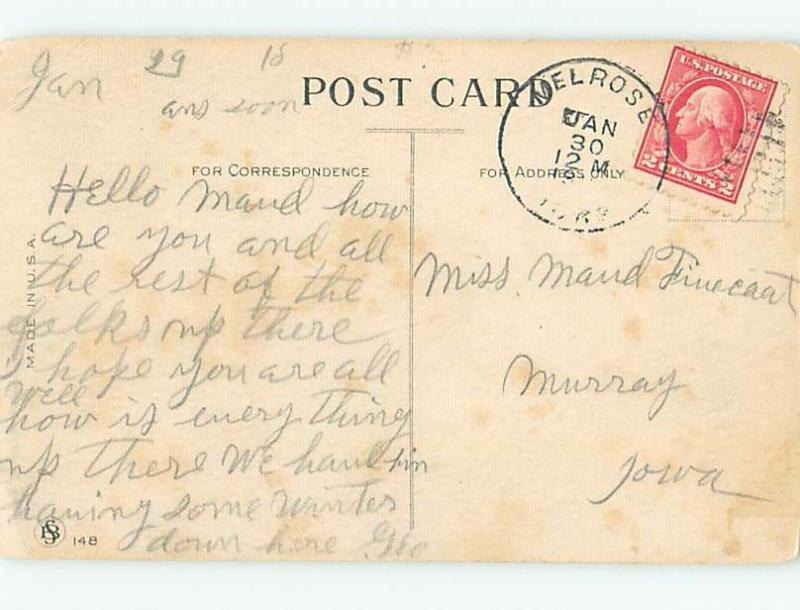 Jan 29 18
ans soon
POST CARD
FOR CORRESPONDENCE
FOR ADDRESS ONLY
MELROSE
JAN
30
12 M
U.S. POSTAGE
2 CENTS 2
MADE IN U.S.A.
Hello Maud how
are you and all
the rest of the
folks up there
I hope you are all
well
how is everything
up there We have bin
having some winter
down here Geo
148
Miss. Maud Finecoat
Murray
Iowa